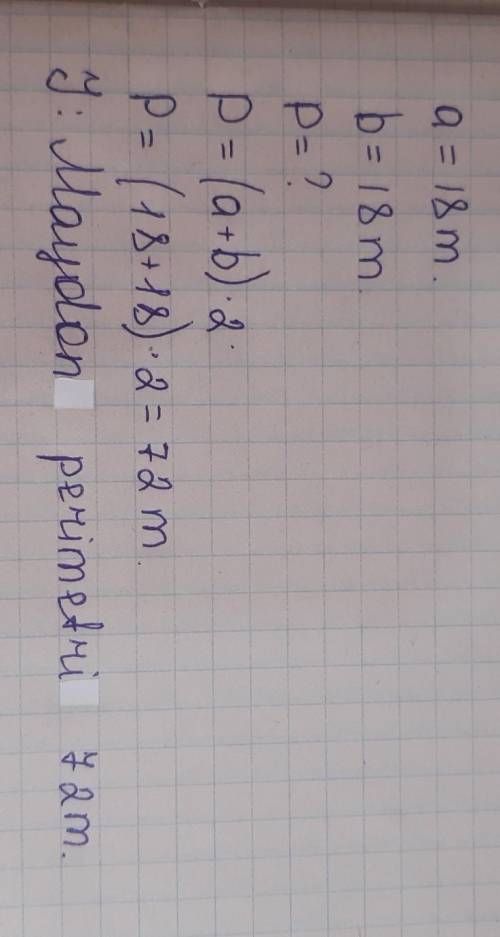 a = 18 m.
b = 18 m.
P = ?
P = (a+b)·2.
P = (18+18)·2 = 72 m.
J: Maydon perimetri 72 m.